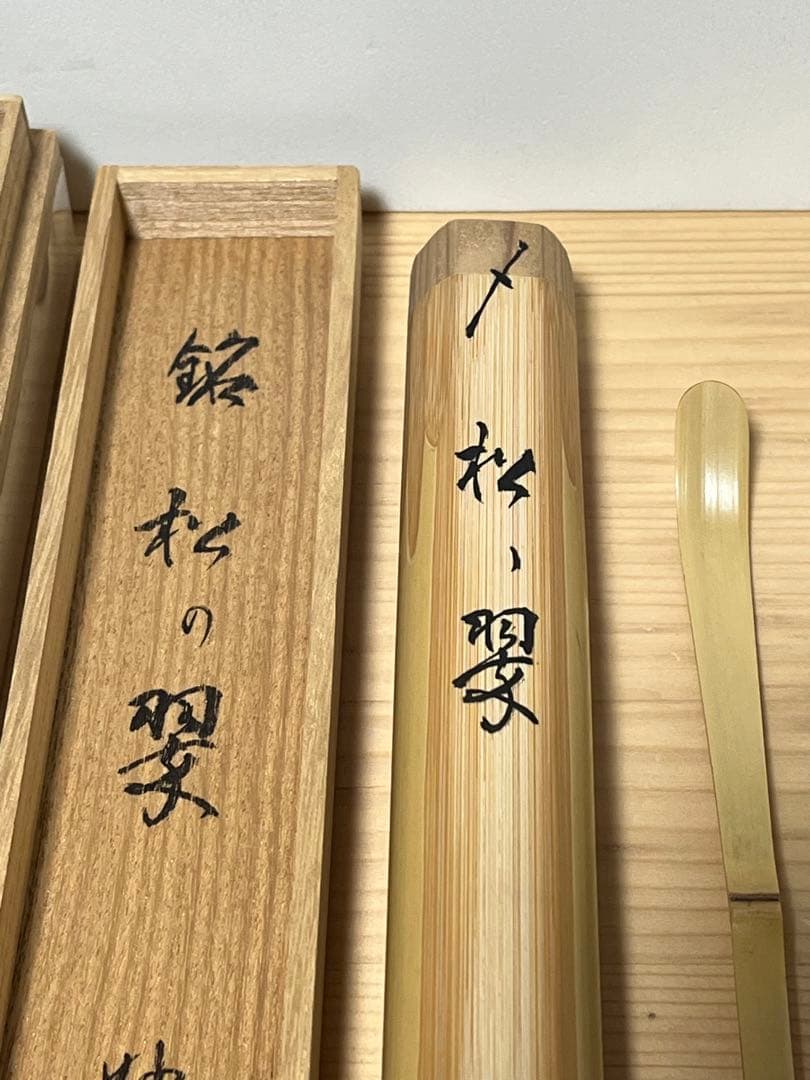 銘 松の翠
〆 松ヽ翠